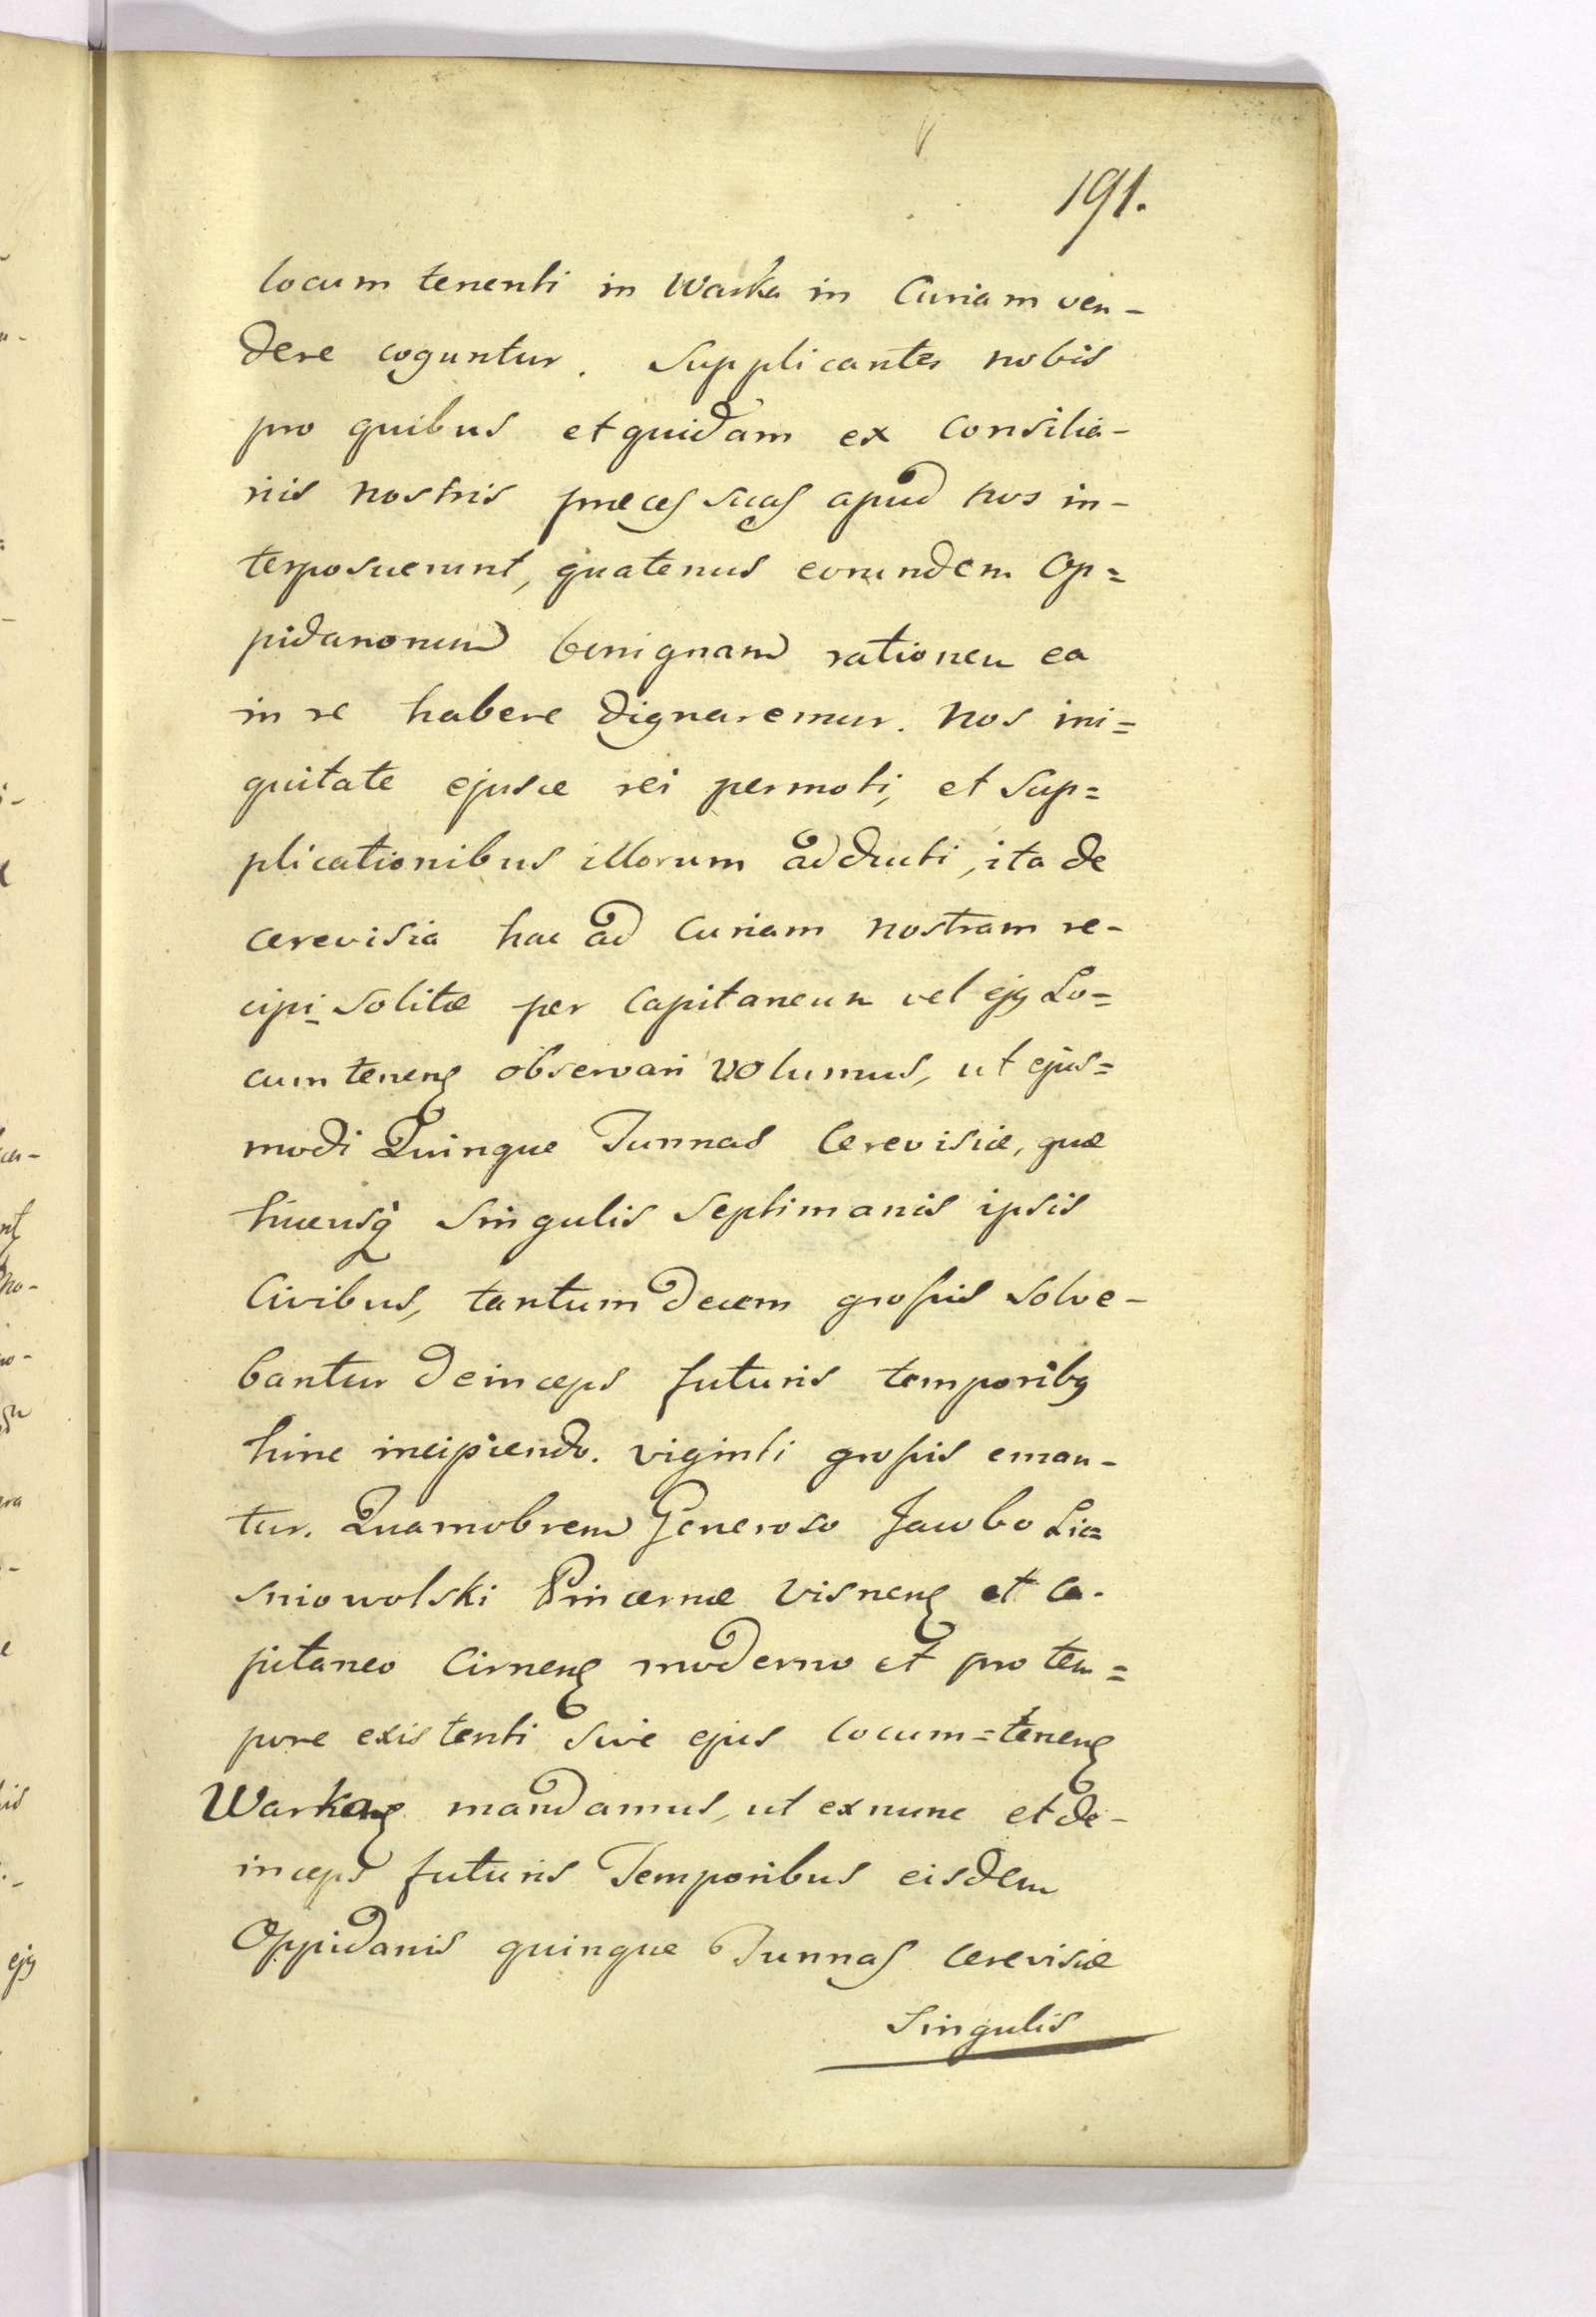 191.
locum tenenti in Warka in Curiam ven-
dere coguntur. Supplicantes nobis
pro quibus et quidam ex Consilia-
riis nostris præces suas apud nos in-
terposuerunt, quatenus eorundem Op=
pidanorum benignam rationem ea
in re habere dignaremur. Nos ini=
quitate ejusce rei permoti, et Sup=
plicationibus illorum adducti, ita de
cerevisia hac ad Curiam nostram re-
cipi solitæ per Capitaneum vel ejq Lo=
cum tenenȩ observari volumus, ut ejus=
modi Quinque Tunnas Cerevisiæ, quæ
hucusq singulis Septimanis ipsis
Civibus, tantum decem grossis solve-
bantur deinceps futuris temporibq
hinc incipiendo. viginti grossis eman-
tur. Quamobrem Generoso Jacobo Lia=
sniowolski Pincernæ Visnenȩ et Ca-
pitaneo Cirnenȩ moderno et pro tem=
pore existenti sive ejus locum=tenenȩ
Warkenȩ mandamus, ut ex nunc et de-
inceps futuris Temporibus eisdem
Oppidanis quinque Tunnas cerevisiæ
Singulis